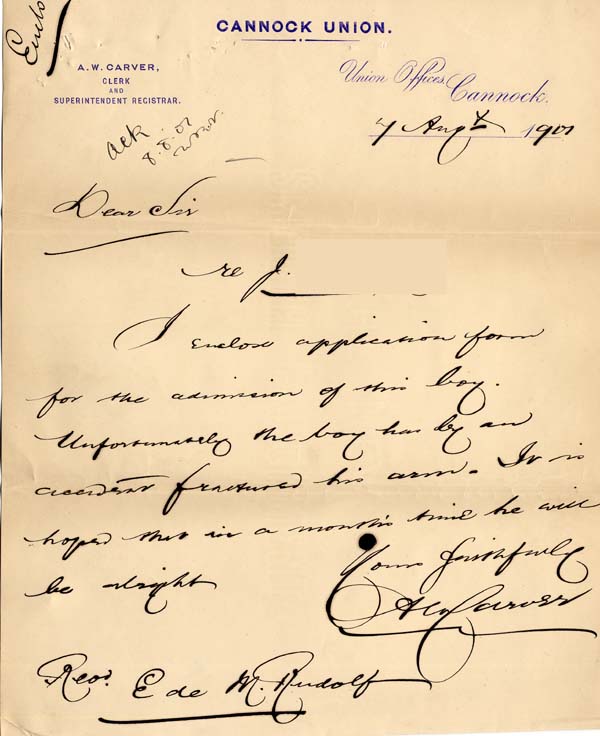 Encls
CANNOCK UNION.
A. W. CARVER,
CLERK
AND
SUPERINTENDENT REGISTRAR.
Union Offices,
Cannock.
7 Augt 1901
ack
8.8.01
Dear Sir
re J.
I enclose application form
for the admission of this boy.
Unfortunately the boy has by an
accident fractured his arm. It is
hoped that in a month's time he will
be alright
Yours faithfully
AW Carver
Revd. E de M. Rudolf